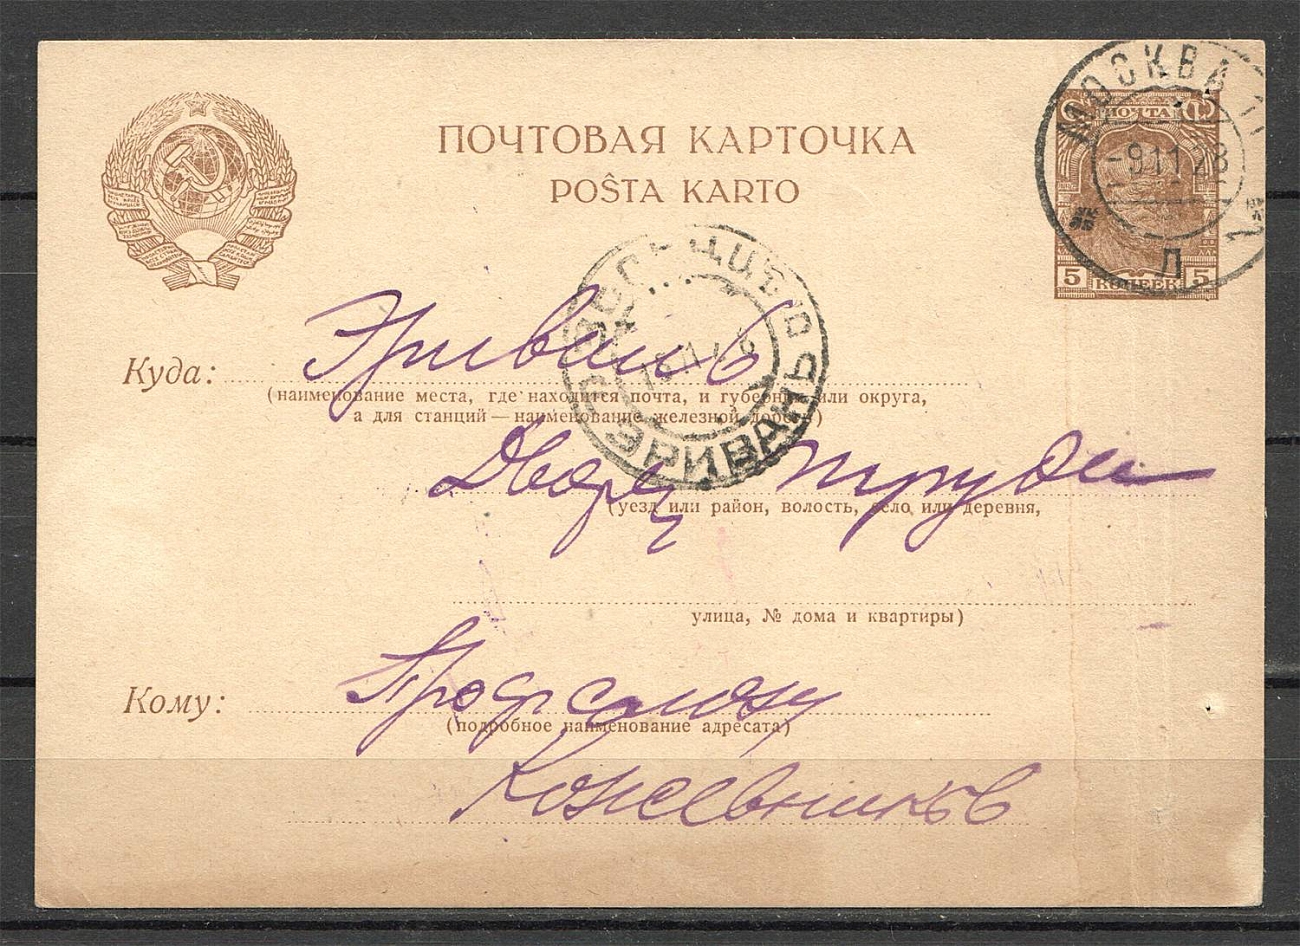 ПОЧТОВАЯ КАРТОЧКА
POŜTA KARTO
МОСКВА
-9 11 28
Л
ПОЧТА
5 КОПЕЕК 5
Куда: Эривань
(наименование места, где находится почта, и губерния или округа,
а для станций — наименование железной дороги)
ЭРИВАНЬ
Дворец труда
(уезд или район, волость, село или деревня,
улица, № дома и квартиры)
Кому: Профсоюзу
(подробное наименование адресата)
Кожевников